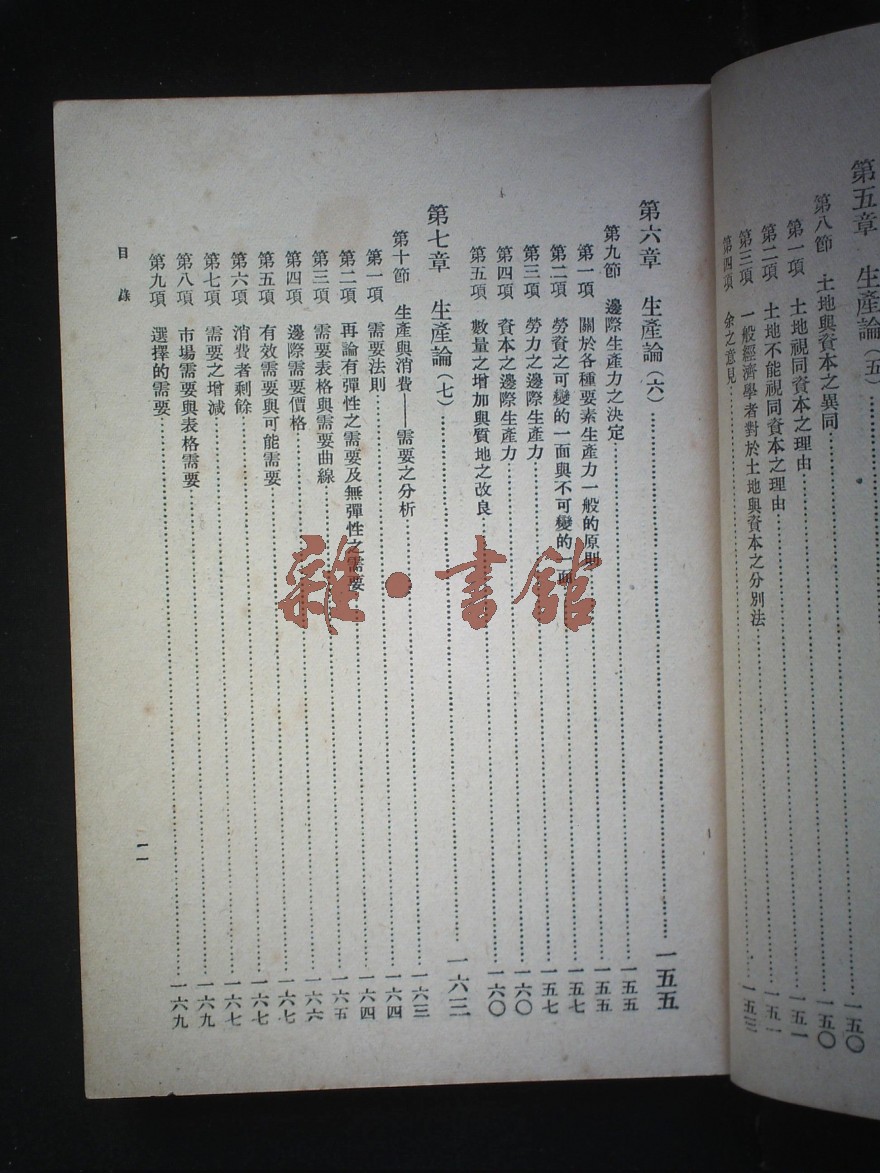 第五章 生產論(五)
第八節 土地與資本之異同……一五〇
第一項 土地視同資本之理由……一五〇
第二項 土地不能視同資本之理由……一五一
第三項 一般經濟學者對於土地與資本之分別法……一五一
第四項 余之意見……一五三
第六章 生產論(六)……一五五
第九節 邊際生產力之決定……一五五
第一項 關於各種要素生產力一般的原則……一五五
第二項 勞資之可變的一面與不可變的一面……一五七
第三項 勞力之邊際生產力……一五七
第四項 資本之邊際生產力……一六〇
第五項 數量之增加與質地之改良……一六〇
第七章 生產論(七)……一六三
第十節 生產與消費——需要之分析……一六三
第一項 需要法則……一六四
第二項 再論有彈性之需要及無彈性之需要……一六四
第三項 需要表格與需要曲線……一六五
第四項 邊際需要價格……一六六
第五項 有效需要與可能需要……一六七
第六項 消費者剩餘……一六七
第七項 需要之增減……一六七
第八項 市場需要與表格需要……一六九
第九項 選擇的需要……一六九
目錄
一一
雜·書館